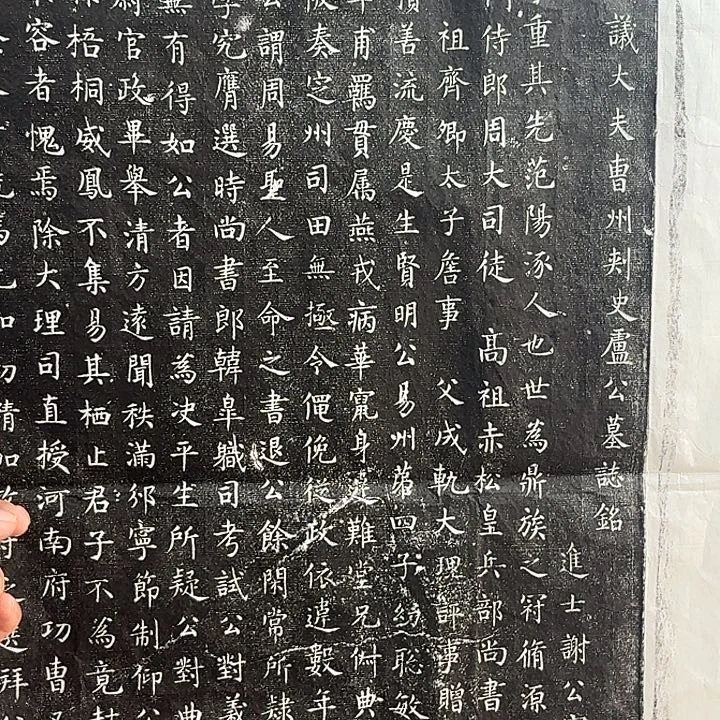 議大夫曹州刾史盧公墓誌銘
進士謝公
重其先范陽涿人也世為鼎族之冠脩源
侍郎周大司徒 高祖赤松皇兵部尚書
祖齊卿太子詹事 父成軌大理評事贈
善流慶是生賢明公易州苐四子幼聡敏
甫羈貫属燕戎病華竄身是難堂兄倂典
奏定州司田無極令僶俛従政依違數年
謂周易聖人至命之書退公餘閑常所隸
究膺選時尚書郎韓臯職司考試公對義
無有得如公者因請為决平生所疑公對典
尉官政畢舉清方遠聞秩滿邠寧節制仰公
梧桐威鳳不集易其栖止君子不為竟
容者愧焉除大理司直授河南府功曹